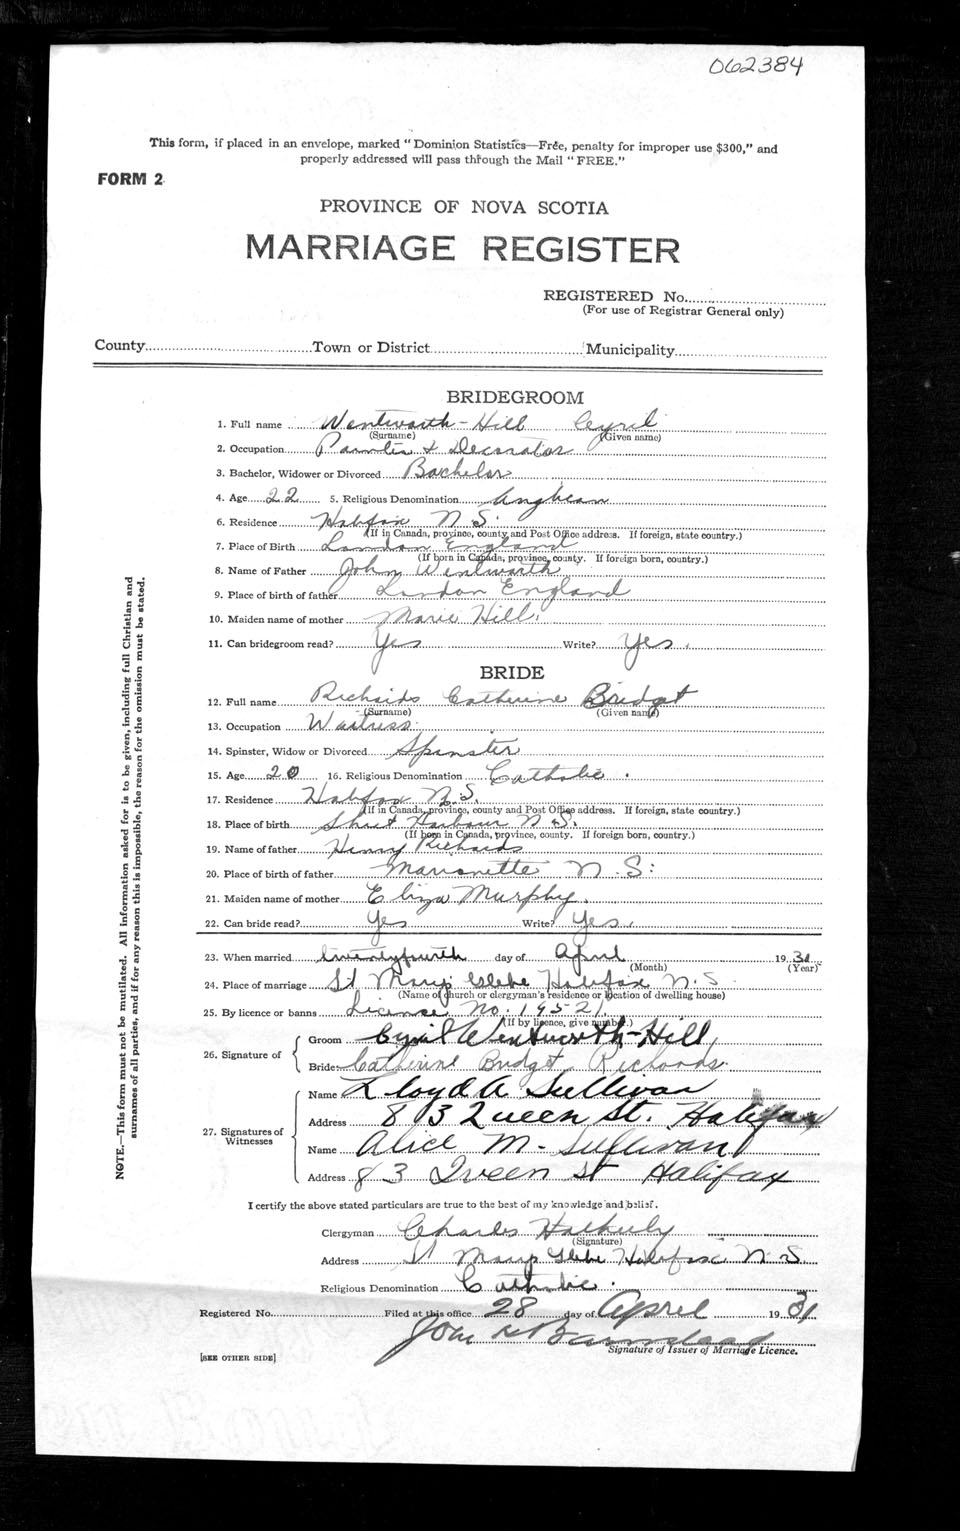 062384
This form, if placed in an envelope, marked "Dominion Statistics—Free, penalty for improper use $300," and
properly addressed will pass through the Mail "FREE."
FORM 2
PROVINCE OF NOVA SCOTIA
MARRIAGE REGISTER
REGISTERED No.
(For use of Registrar General only)
County Town or District Municipality
BRIDEGROOM
1. Full name Wentworth-Hill Cyril
(Surname) (Given name)
2. Occupation Painter & Decorator
3. Bachelor, Widower or Divorced Bachelor
4. Age 22 5. Religious Denomination Anglican
6. Residence Halifax N.S.
(If in Canada, province, county and Post Office address. If foreign, state country.)
7. Place of Birth London England
(If born in Canada, province, county. If foreign born, country.)
8. Name of Father John Wentworth
9. Place of birth of father London England
10. Maiden name of mother Marie Hill.
11. Can bridegroom read? Yes Write? Yes.
BRIDE
12. Full name Richards Catherine Bridget
(Surname) (Given name)
13. Occupation Waitress
14. Spinster, Widow or Divorced Spinster
15. Age 20 16. Religious Denomination Catholic.
17. Residence Halifax N.S.
(If in Canada, province, county and Post Office address. If foreign, state country.)
18. Place of birth Sheet Harbour N.S.
(If born in Canada, province, county. If foreign born, country.)
19. Name of father Henry Richards
20. Place of birth of father N.S.
21. Maiden name of mother Eliza Murphy.
22. Can bride read? Yes Write? Yes.
23. When married twentyfourth day of April 1931
(Month) (Year)
24. Place of marriage St Marys Glebe Halifax N.S.
(Name of church or clergyman's residence or location of dwelling house)
25. By licence or banns License No. 19521
(If by licence, give number.)
26. Signature of
Groom Cyril Wentworth-Hill
Bride Catherine Bridget Richards
27. Signatures of Witnesses
Name Lloyd A Sullivan
Address 83 Queen St. Halifax
Name Alice M. Sullivan
Address 83 Queen St Halifax
I certify the above stated particulars are true to the best of my knowledge and belief.
Clergyman Charles
(Signature)
Address St Marys Glebe Halifax N.S.
Religious Denomination Catholic.
Registered No. Filed at this office 28 day of April 1931
Barnstead
Signature of Issuer of Marriage Licence.
[SEE OTHER SIDE]
NOTE.—This form must not be mutilated. All information asked for is to be given, including full Christian and
surnames of all parties, and if for any reason this is impossible, the reason for the omission must be stated.